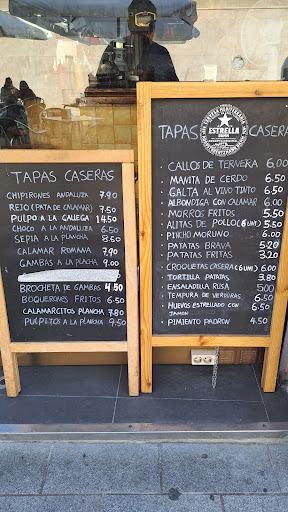 TAPAS CASERAS
CHIPIRONES ANDALUZA 7.90
REJO (PATA DE CALAMAR) 7.50
PULPO A LA GALLEGA 14.50
CHOCO A LA ANDALUZA 6.50
SEPIA A LA PLANCHA 8.60
CALAMAR ROMANA 7.90
GAMBAS A LA PLACHA 9.00
BROCHETA DE GAMBAS 4.50
BOQUERONES FRITOS 6.50
CALAMARCITOS PLANCHA 7.80
PULPITOS A LA PLANCHA 9.50
TAPAS CASERAS
ESTRELLA
DAMM
CALLOS DE TERVERA 6.00
MAVITA DE CERDO 6.50
GALTA AL VIVO TINTO 6.50
ALBONDIGA CON CALAMAR 6.00
MORROS FRITOS 5.50
ALITAS DE POLLO (6 UNI) 5.50
PINCHO MORUNO 6.00
PATATAS BRAVA 5.20
PATATAS FRITAS 3.20
CROQUETAS CASERA (6 UNI) 6.00
TORTILLA PATATAS 3.80
ENSALADILLA RUSA 5.00
TEMPURA DE VERDURAS 6.50
HUEVOS ESTRELLADO CON 6.50
JAMON
PIMIENTO PADRON 4.50